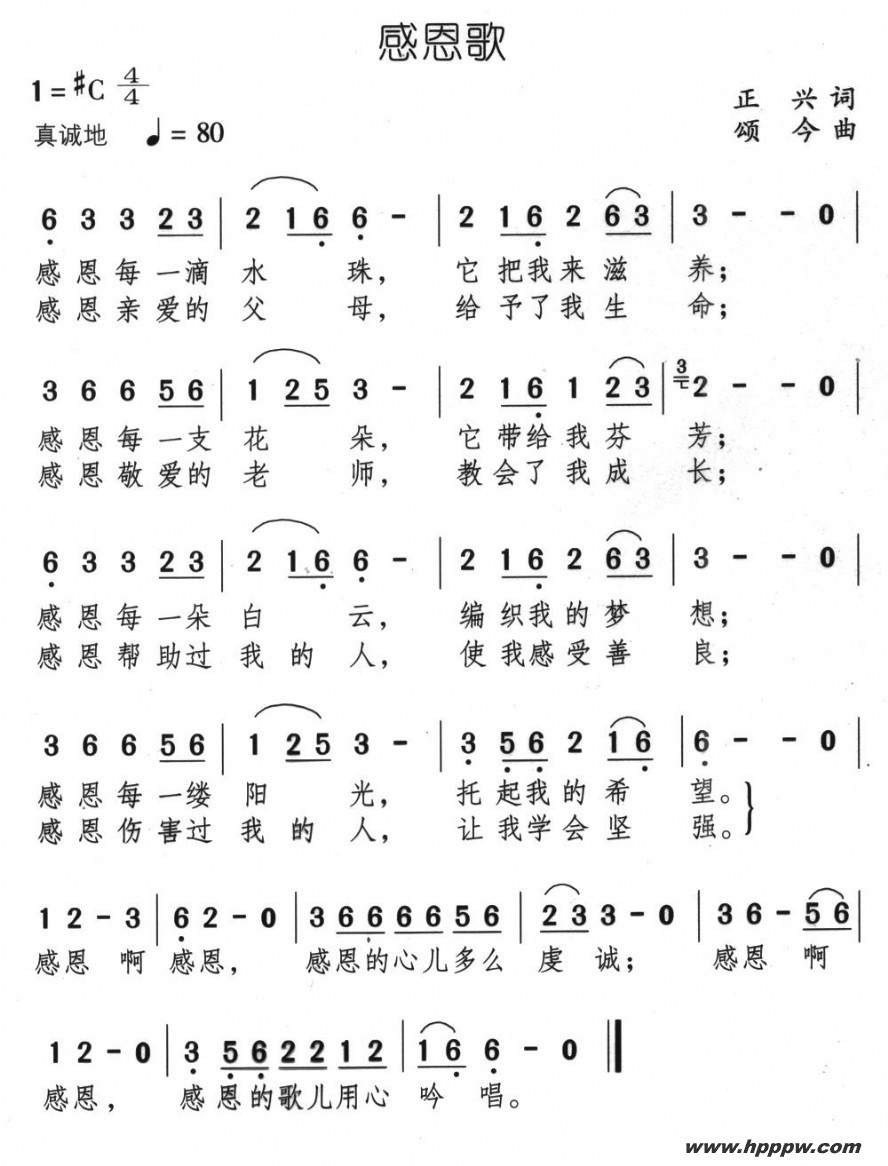 感恩歌
1=♯C 4/4
正 兴 词
真诚地 ♩=80
颂 今 曲
6̣ 3 3 2̲3̲ | 2 1̲6̣̲ 6̣ - | 2 1̲6̣̲ 2 6̲3̲ | 3 - - 0 |
感恩每一滴水 珠，它把我来滋 养；
感恩亲爱的父 母，给予了我生 命；
3 6 6 5̲6̲ | 1 2̲5̲ 3 - | 2 1̲6̣̲ 1 2̲3̲ | ³2 - - 0 |
感恩每一支花 朵，它带给我芬 芳；
感恩敬爱的老 师，教会了我成 长；
6̣ 3 3 2̲3̲ | 2 1̲6̣̲ 6̣ - | 2 1̲6̣̲ 2 6̲3̲ | 3 - - 0 |
感恩每一朵白 云，编织我的梦 想；
感恩帮助过我的人，使我感受善 良；
3 6 6 5̲6̲ | 1 2̲5̲ 3 - | 3̣ 5̣̲6̣̲ 2 1̲6̣̲ | 6̣ - - 0 |
感恩每一缕阳 光，托起我的希 望。
感恩伤害过我的人，让我学会坚 强。
1 2 - 3 | 6̣ 2 - 0 | 3 6̲6̲ 6̲6̲ 5̲6̲ | 2̲3̲ 3 - 0 | 3 6 - 5̲6̲ |
感恩 啊 感恩， 感恩的心儿多么 虔 诚； 感恩 啊
1 2 - 0 | 3̣ 5̣̲6̣̲ 2̲2̲ 1̲2̲ | 1̲6̣̲ 6̣ - 0 ‖
感恩， 感恩的歌儿用心 吟 唱。
www.hpppw.com